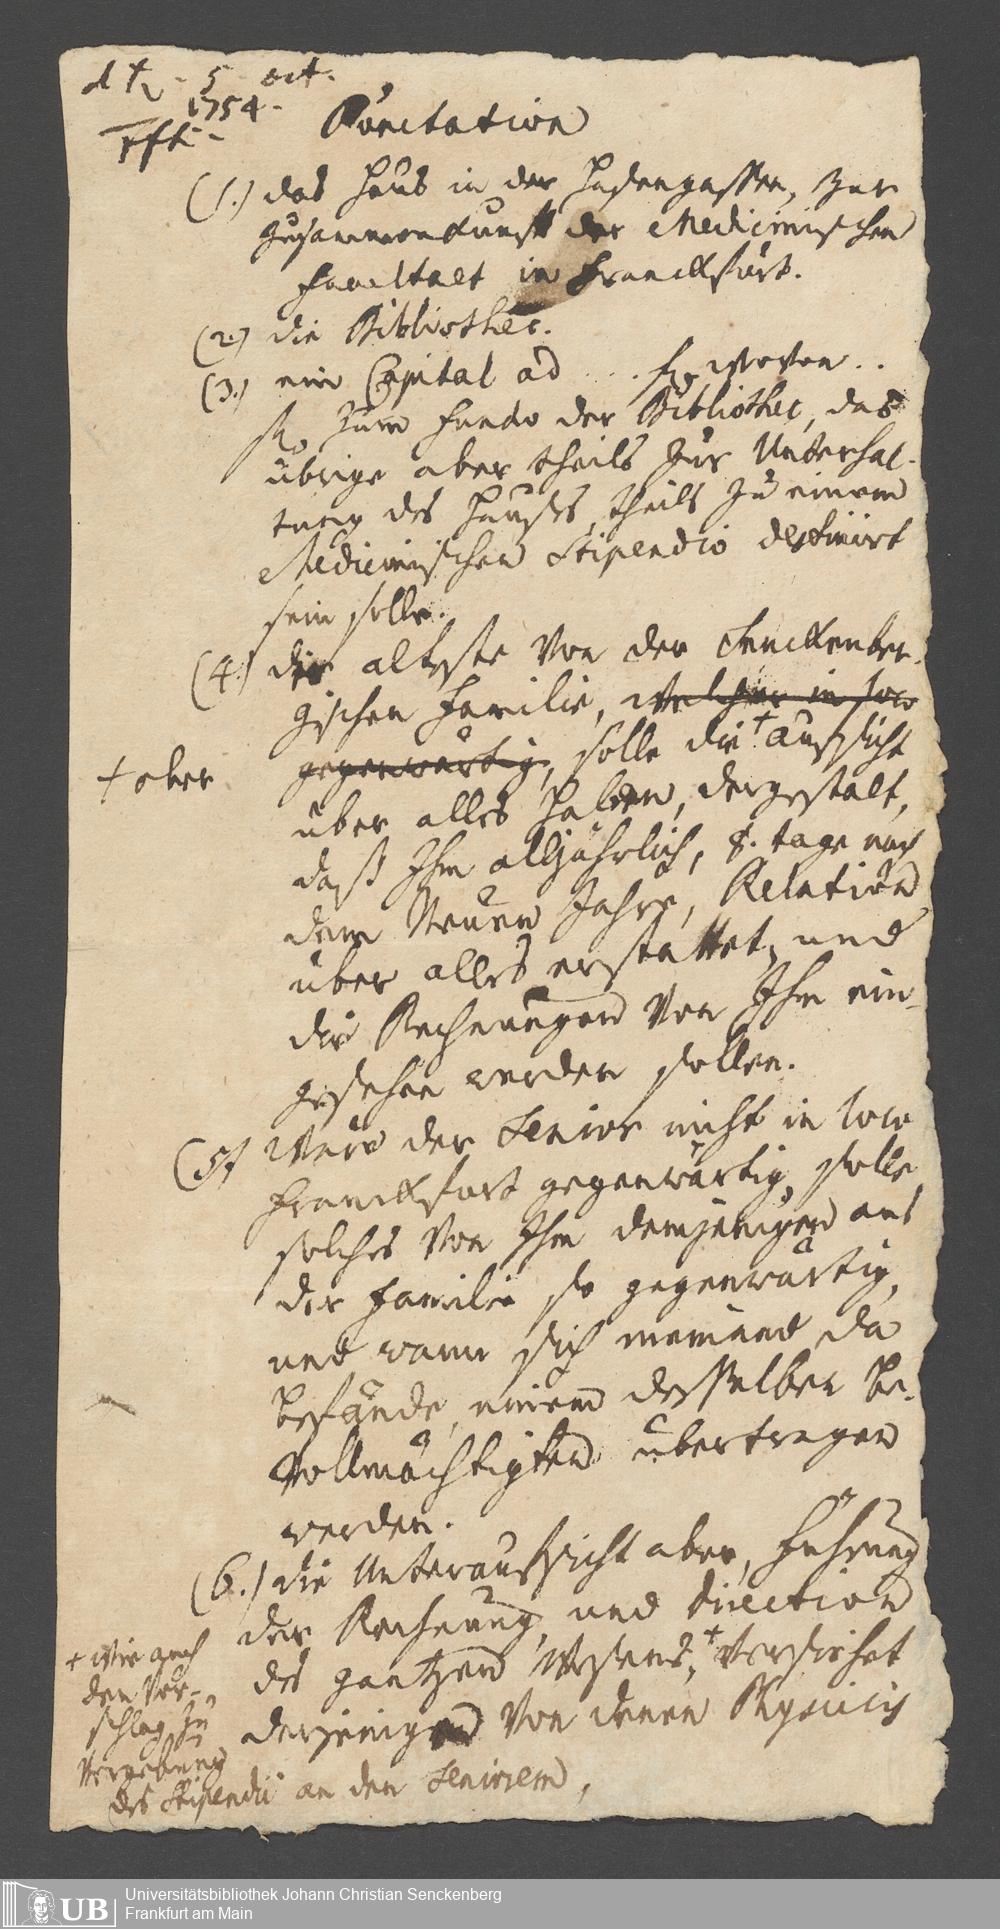 d 5 oct.
1754.
Fft.
Punctation
(1.) das Haus in der Hasengassen, zur
Zusammenkunfft der Medicinischen
Facultaet in Franckfurt.
(2.) die Bibliothec.
(3.) ein Capital ad ... fl. wovon ..
fl. zum Fundo der Bibliothec, das
übrige aber theils zur Unterhal-
tung des Hauses, theils zu einem
Medicinischen Stipendio destinirt
sein solle.
(4.) der älteste von der Senckenber-
gischen Familie, welcher in loco
gegenwärtig, solle die + Auffsicht
+ ober
über alles haben, dergestalt,
daß Ihm alljährlich, 8. tage nach
dem Neuen Jahre, Relation
über alles erstattet, und
die Rechnungen von Ihm ein-
gesehen werden sollen.
(5.) Wäre der Senior nicht in loco
Franckfurt gegenwärtig, solle
solches von Ihm demjenigen aus
der Familie so gegenwärtig,
und wann sich niemand da
befände, einem desselben be-
vollmächtigten übertragen
werden.
(6.) die Unterauffsicht aber, Führung
der Rechnung, und Direction
des gantzen Wesens, + versiehet
derjenige von denen Physicis
+ wie auch
den Vor-
schlag zu
Vergebung
des Stipendii an den Seniorem,
UB
Universitätsbibliothek Johann Christian Senckenberg
Frankfurt am Main